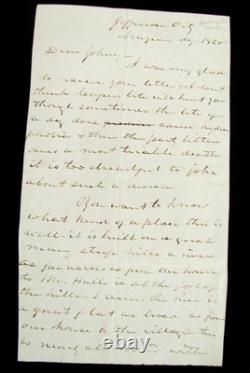 Jefferson City
Dear John,
I was very glad
to receive your letter & I dont
think tempers bite will hurt you
though sometimes the bite of
a dog does cause hydro
phobia & then the party bitten
dies a most terrible death
it is too dreadful to joke
about such a disease
You want to know
what kind of a place this is
well it is built on a great
many steep hills a river
as far across as from our house
to Mr. Halls is at the foot of
the hills & across the river is
a great flat as broad as from
our house to the village this
is nearly all with